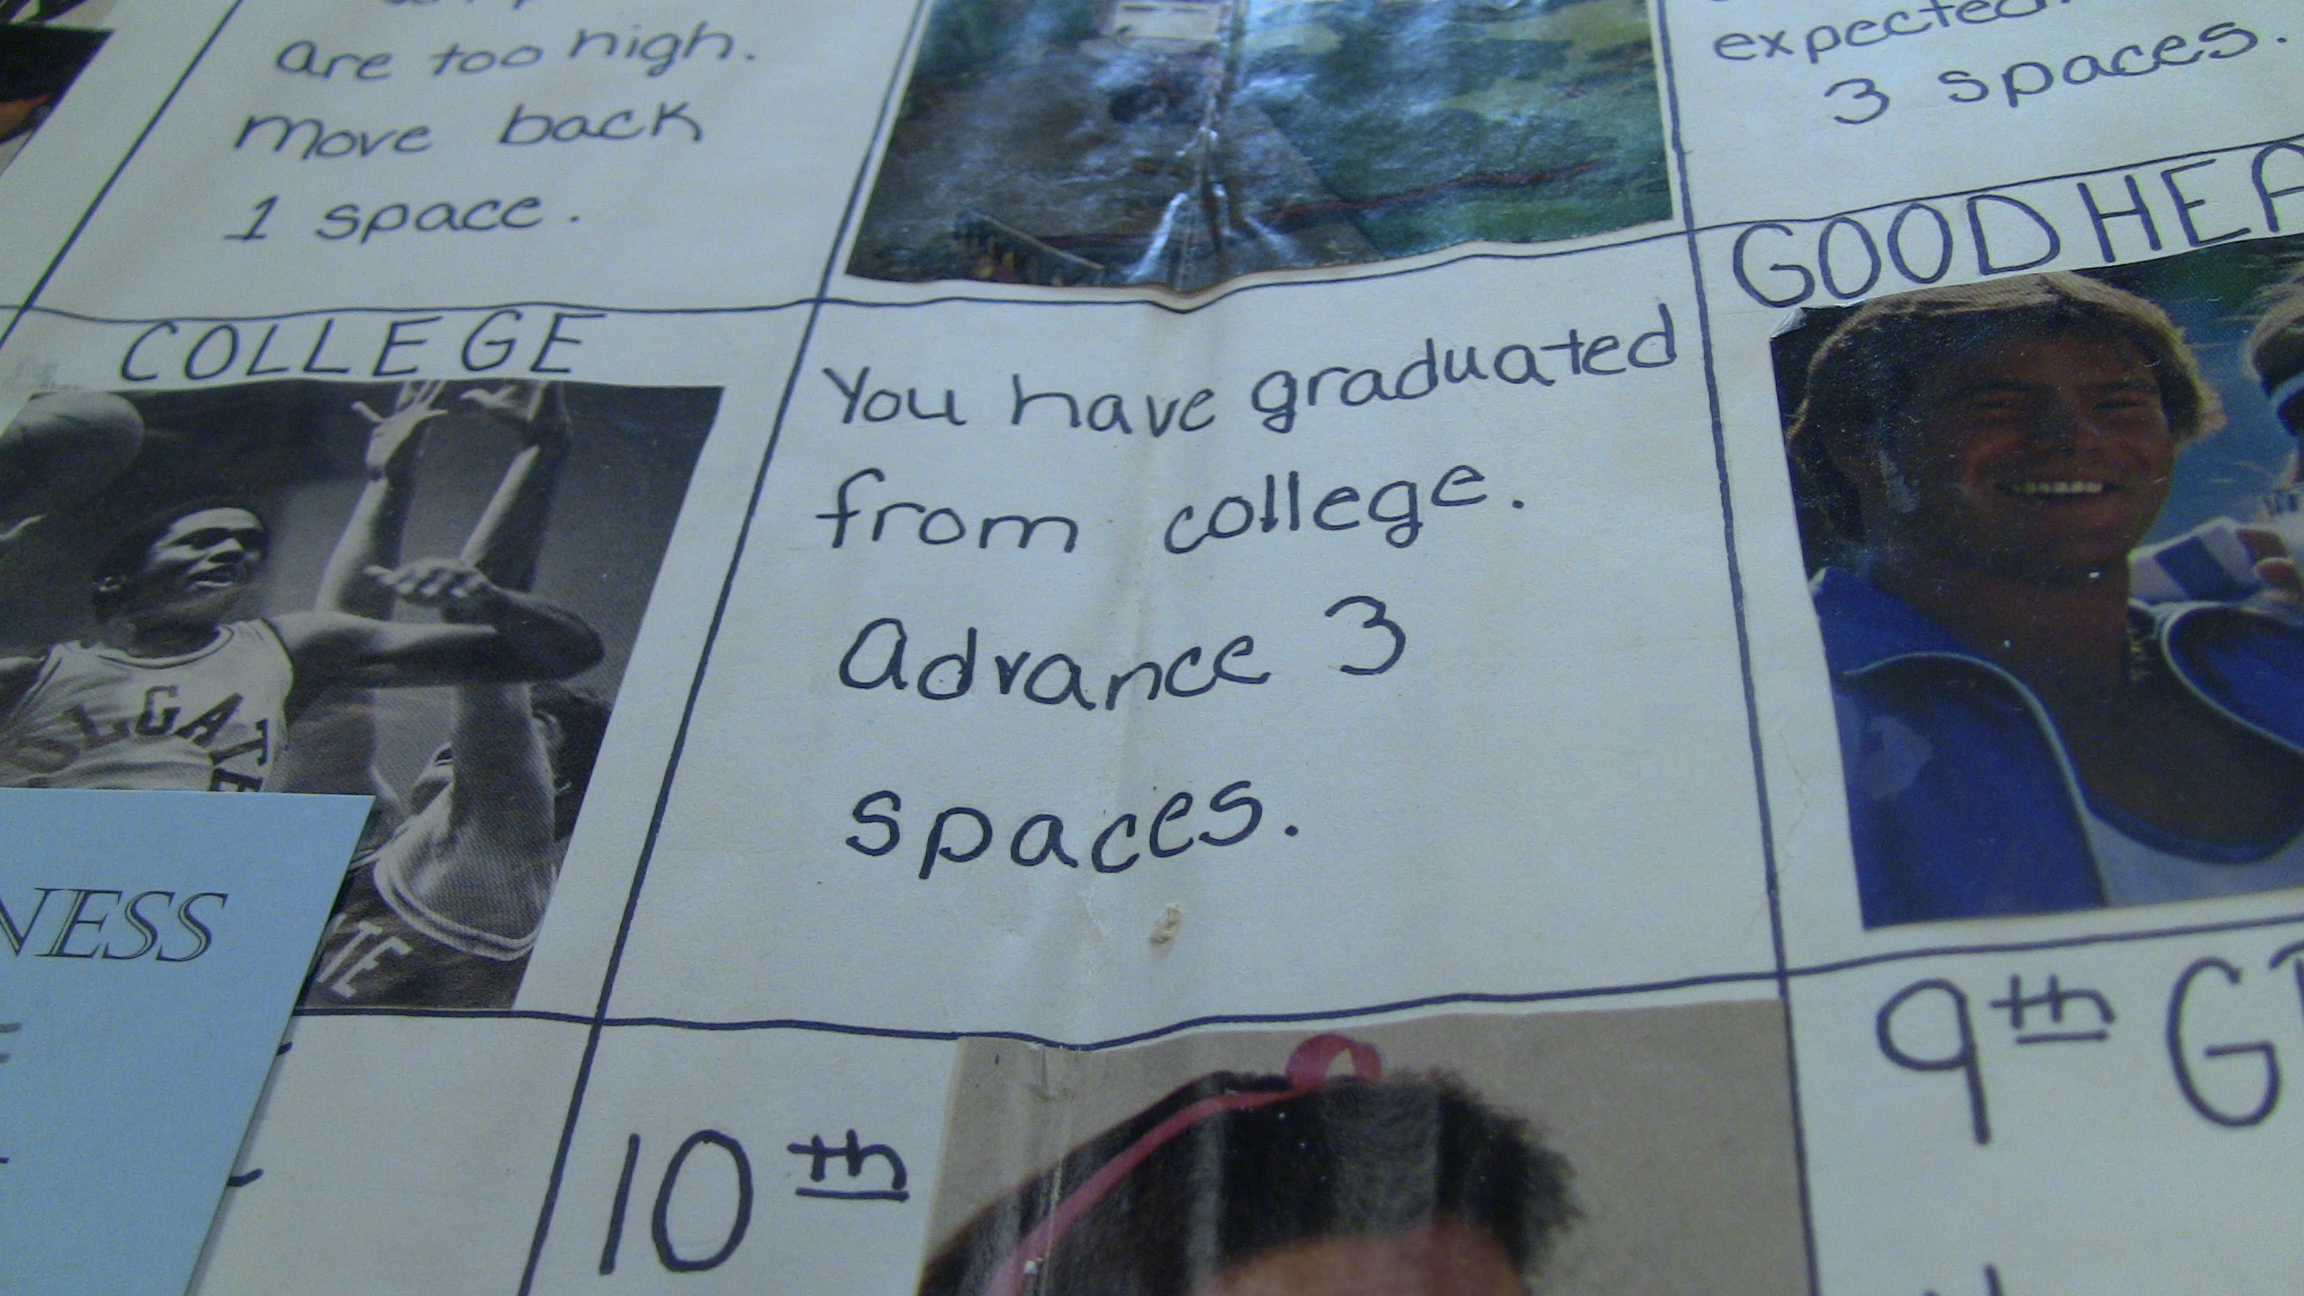 are too high.
move back
1 space.
expected.
3 spaces.
COLLEGE
COLGATE
You have graduated
from college.
Advance 3
spaces.
GOOD
10th
9th